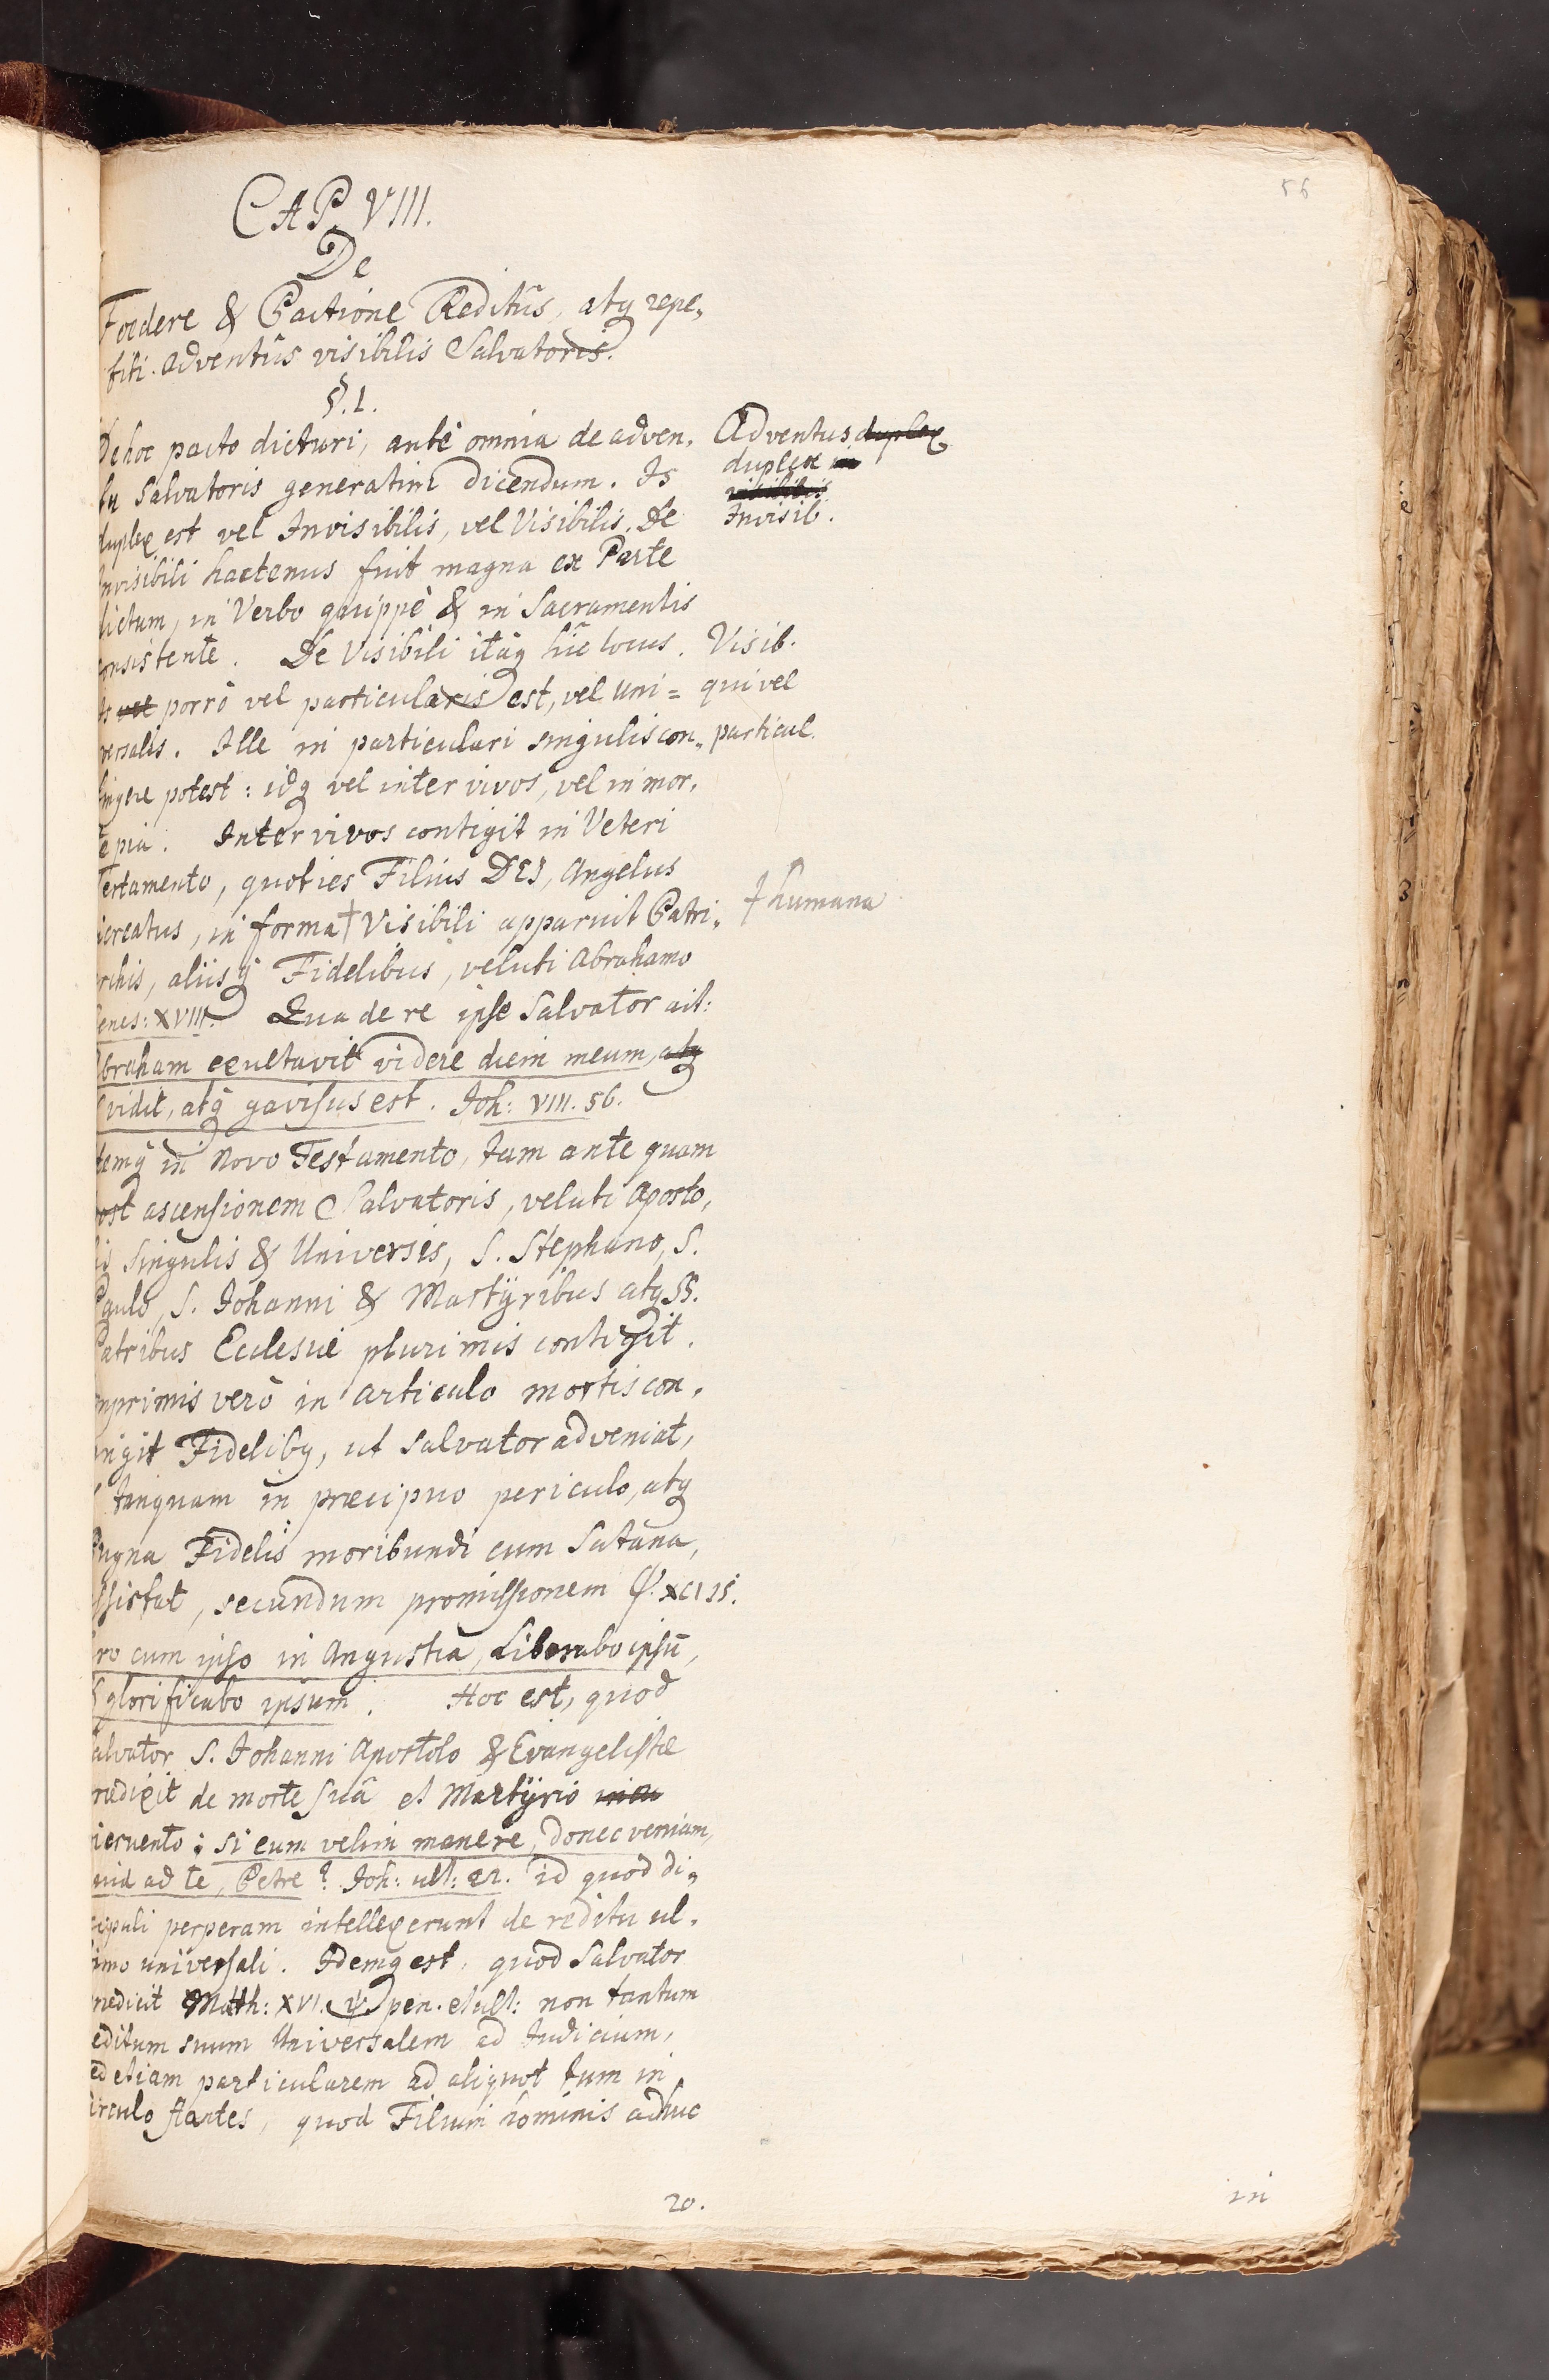 56
CAP. VIII.
De
Foedere & Pactione Reditûs, atq repe„
titi Adventûs visibilis Salvatoris.
§. 1.
De hoc pacto dicturi, antè omnia de adven„
tu Salvatoris generatim dicendum. Is
duplex est vel Invisibilis, vel Visibilis. De
invisibili hactenus fuit magna ex Parte
dictum, in Verbo quippè & in Sacramentis
consistente. De Visibili itaq hîc locus.
Is vel porrò vel particularis est, vel Uni=
versalis. Ille in particulari singulis con„
tingere potest: idq vel inter vivos, vel in mor„
te pia. Inter vivos contigit in Veteri
Testamento, quoties Filius DEI, Angelus
icreatus, in forma † Visibili apparuit Patri„
rchis, aliisq Fidelibus, veluti Abrahamo
Genes: XVIII. Qua de re ipse Salvator ait:
Abraham exultavit videre diem meum, atq
& vidit, atq gavisus est. Joh: VIII. 56.
temq in Novo Testamento, tam ante quam
post ascensionem Salvatoris, veluti Aposto„
lis singulis & Universis, S. Stephano, S.
Paulo, S. Johanni & Martÿribus atq SS.
Patribus Ecclesiæ plurimis contigit.
mprimis verò in articulo mortis con„
ingit Fidelibq, ut Salvator adveniat,
& tanquam in præcipuo periculo, atq
Pugna Fidelis moribundi cum Satana,
ssistat, secundum promissionem Ps. XCI 15.
ro cum ipso in Angustia, Liberabo ipsū,
& glorificabo ipsum. Hoc est, quod
Salvator S. Johanni Apostolo & Evangelistæ
rædixit de morte suâ et Martÿrio
ncruento: si eum velim manere, donec veniam,
uid ad te, Petre? Joh: ult: 22. id quod di„
cipuli perperam intellexerunt de reditu ul„
timo universali. Idemq est, quod Salvator
rædicit Math: XVI. ℣ pen. et ult: non tantum
reditum suum Universalem ad Judicium,
ed etiam particularem ad aliquot tum in
irculo stantes, quod Filium hominis adhuc
Adventus duplex
duplex in
visibilis
Invisib.
Visib.
qui vel
particul.
† humana
20.
in